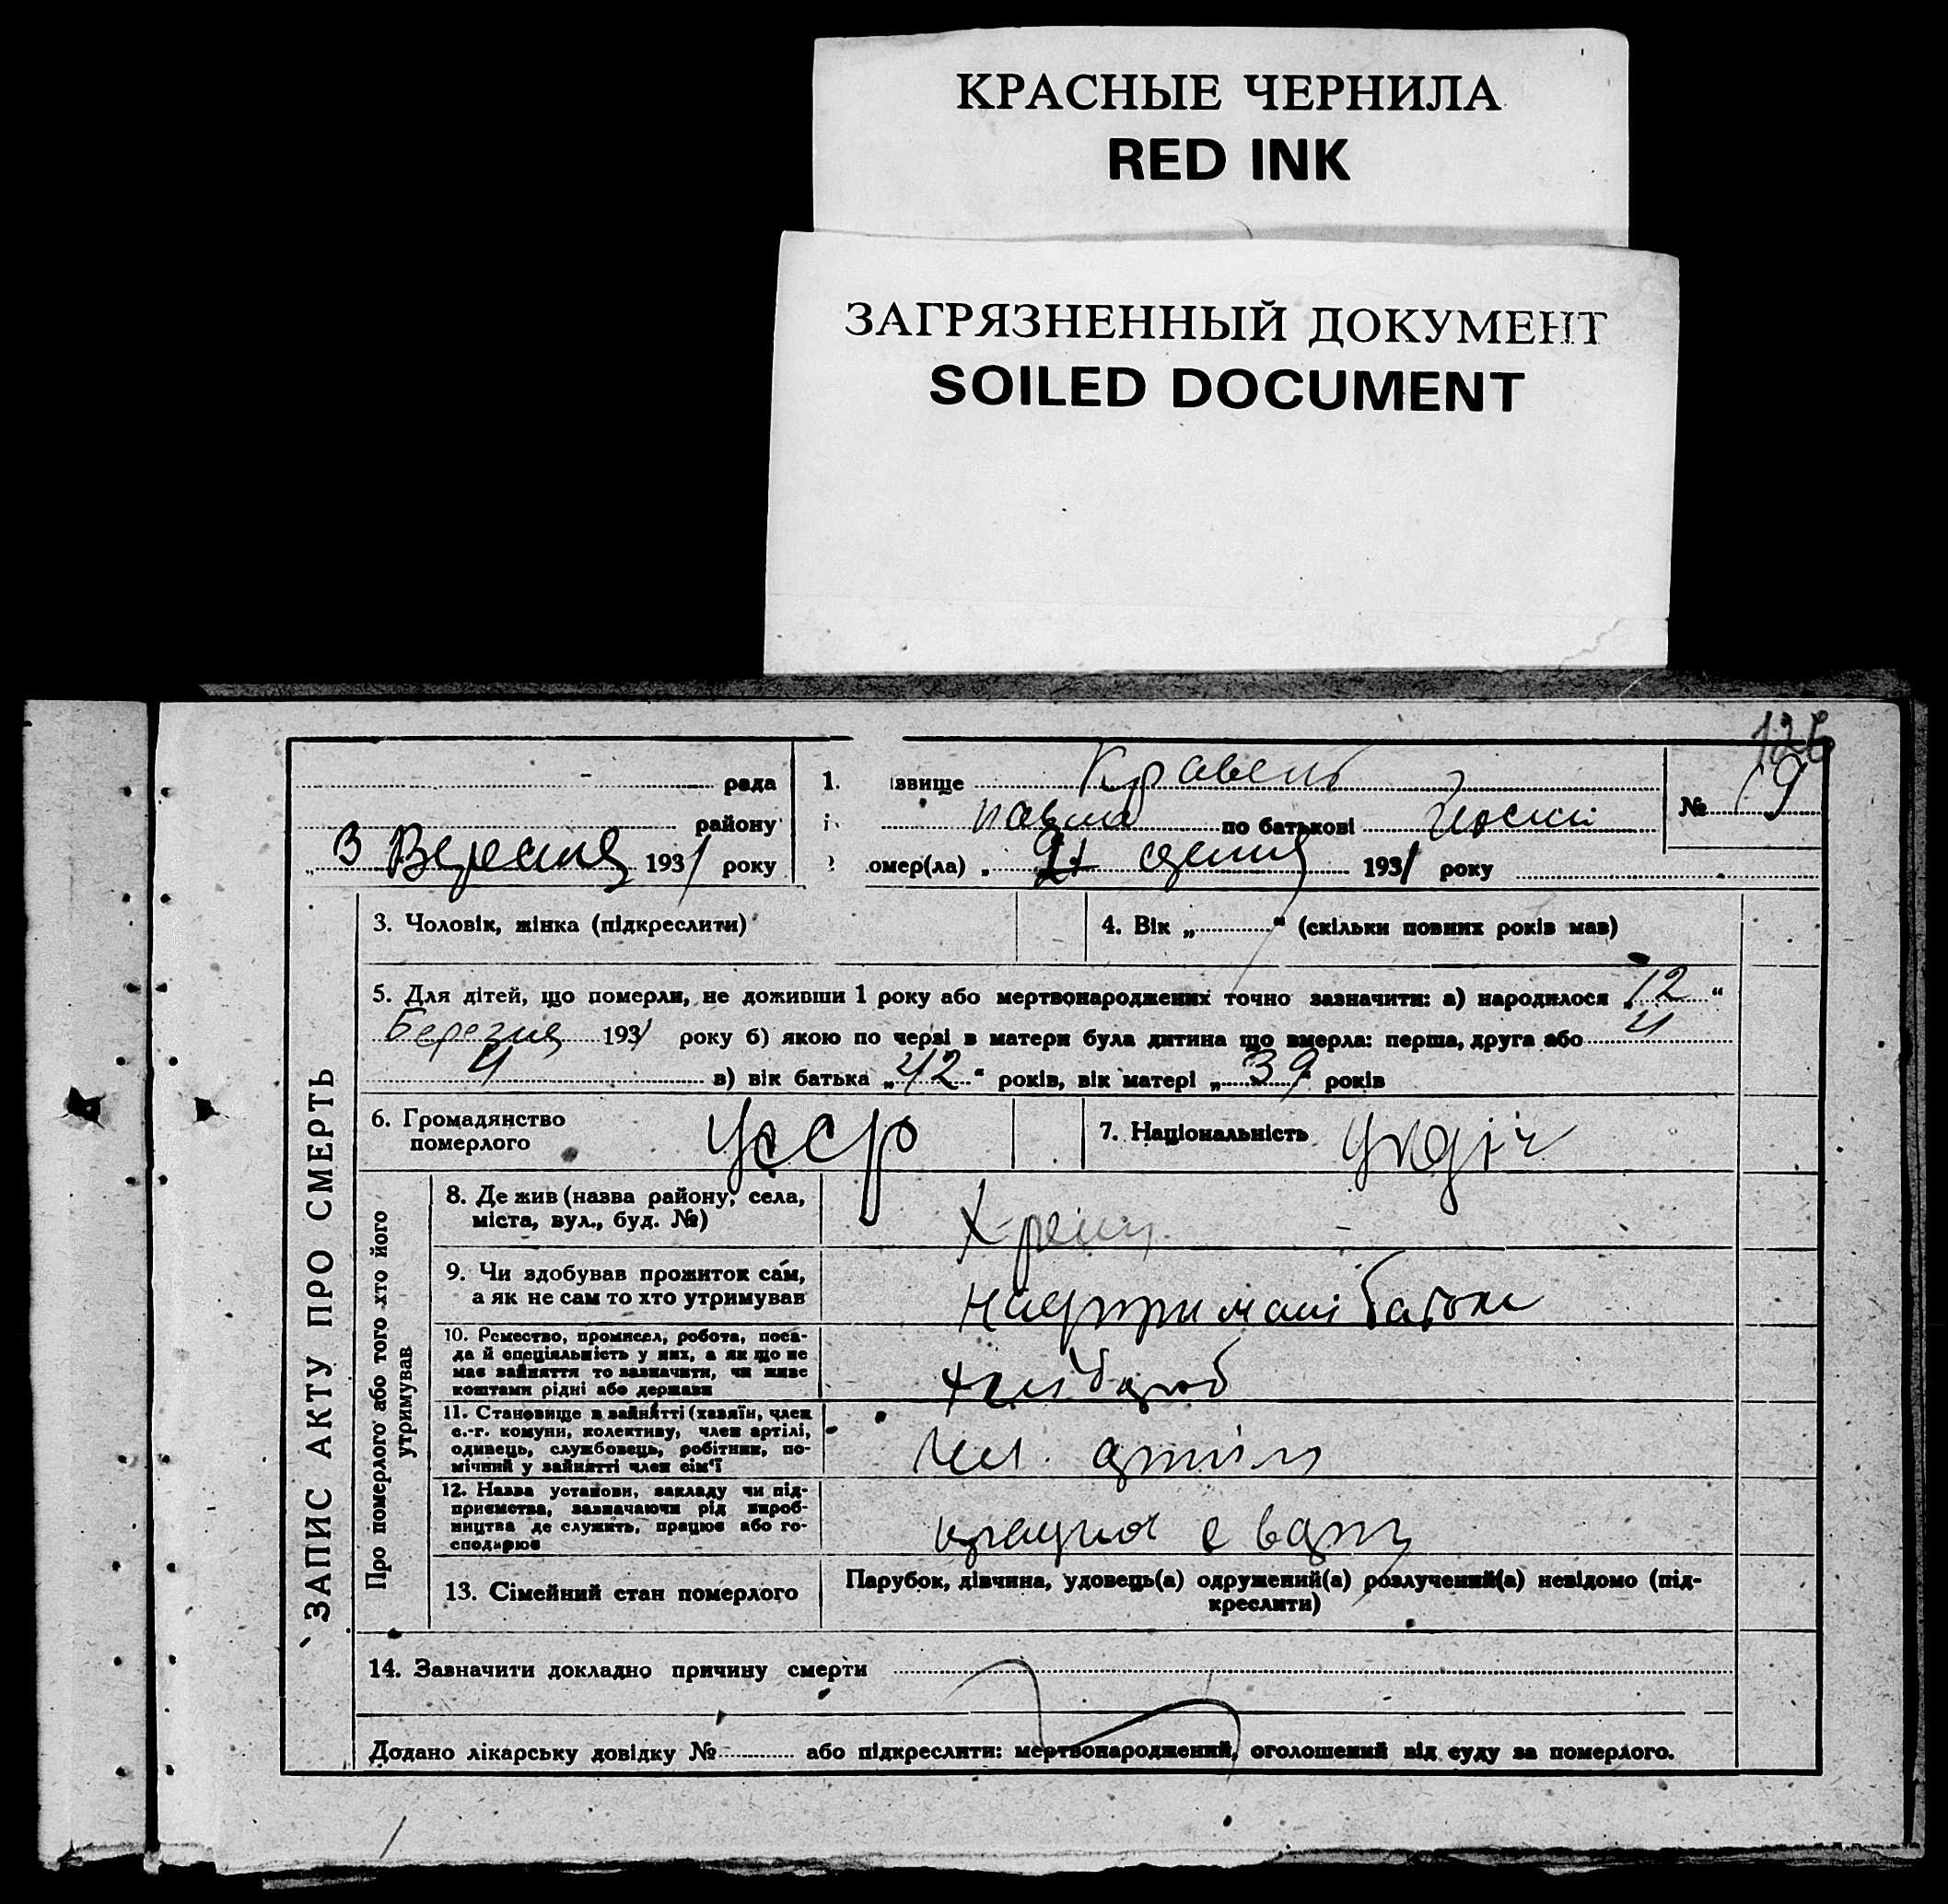 КРАСНЫЕ ЧЕРНИЛА
RED INK
ЗАГРЯЗНЕННЫЙ ДОКУМЕНТ
SOILED DOCUMENT
126
рада
1. ізвище Кравець
№ 19
району
і павло по батькові
„ 3 Вересня 1931 року
омер(ла) „ 21 серпня 1931 року
ЗАПИС АКТУ ПРО СМЕРТЬ
3. Чоловік, жінка (підкреслити)
4. Вік „ “ (скільки повних років мав)
5. Для дітей, що померли, не доживши 1 року або мертвонароджених точно зазначити: а) народилося „ 12 “
Березня 1931 року б) якою по черзі в матери була дитина що вмерла: перша, друга або 4
4 в) вік батька „ 42 “ років, вік матері „ 39 “ років
6. Громадянство
померлого
УССР
7. Національність
Про померлого або того хто його
утримував
8. Де жив (назва району, села,
міста, вул., буд. №)
9. Чи здобував прожиток сам,
а як не сам то хто утримував
на утриманні батька
10. Ремество, промисел, робота, поса-
да й спеціяльність у них, а як що не
має зайняття то зазначити, чи живе
коштами рідні або держави
хлібороб
11. Становище в зайнятті (хазяїн, член
с.-г. комуни, колективу, член артілі,
одинець, службовець, робітник, по-
мічний у зайнятті член сім'ї
чл. артіли
12. Назва установи, закладу чи під-
приємства, зазначаючи рід вироб-
ництва де служить, працює або го-
сподарює
працює в
13. Сімейний стан померлого
Парубок, дівчина, удовець(а) одружений(а) розлучений(а) невідомо (під-
креслити)
14. Зазначити докладно причину смерти
Додано лікарську довідку № або підкреслити: мертвонароджений, оголошений від суду за померлого.